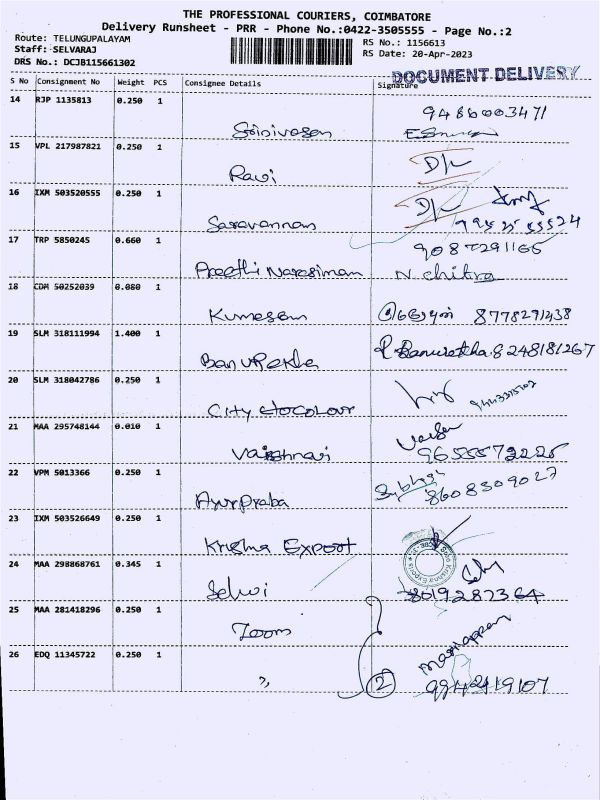 THE PROFESSIONAL COURIERS, COIMBATORE
Delivery Runsheet - PRR - Phone No.:0422-3505555 - Page No.:2
Route: TELUNGUPALAYAM
Staff: SELVARAJ
DRS No.: DCJB115661302
RS No.: 1156613
RS Date: 20-Apr-2023
DOCUMENT DELIVERY
S No Consignment No Weight PCS Consignee Details Signature
14 RJP 1135813 0.250 1 9486003471
Srinivasan
15 VPL 217987821 0.250 1 D/L
Ravi
16 IXM 503520555 0.250 1 D/L
Saravannan
17 TRP 5850245 0.660 1 9087291165
Preethi Narasiman N. Chitra
18 CDM 50252039 0.080 1
Kumesan 8778291438
19 SLM 318111994 1.400 1
Banu Rekha 8248181267
20 SLM 318042786 0.250 1
City to Colour
21 MAA 295748144 0.010 1
Vaishnavi 9655572225
22 VPM 5013366 0.250 1
Ayurpraba 8608309027
23 IXM 503526649 0.250 1
Krishna Export
24 MAA 298868761 0.345 1
Selvi 8019287364
25 MAA 281418296 0.250 1
Zoom
26 EDQ 11345722 0.250 1 Mariappan
" 2 9942419107